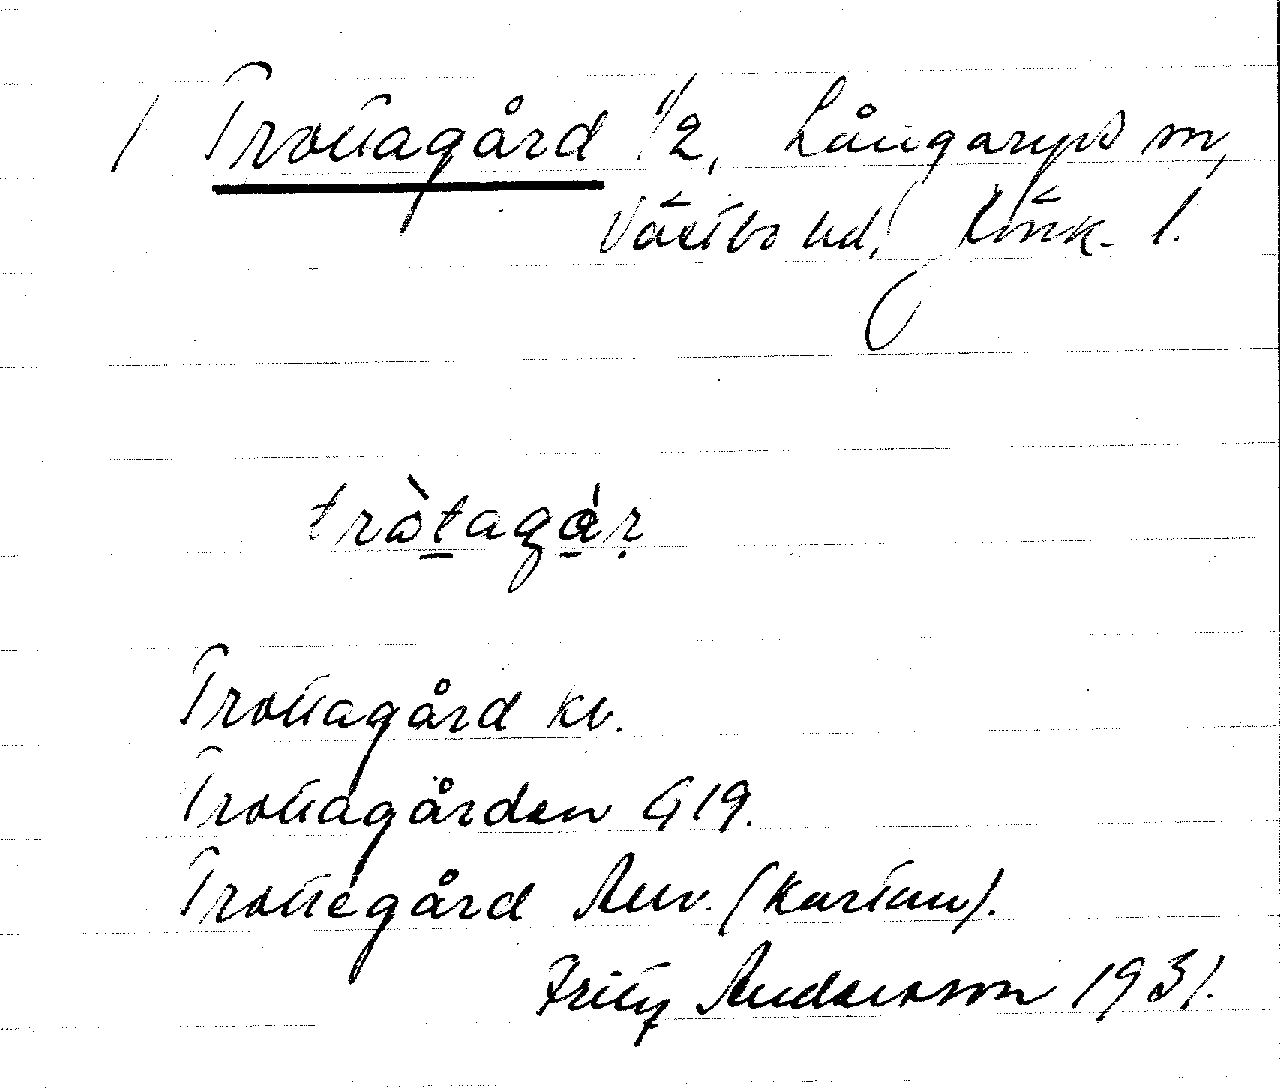 1 Trottagård 1/2, Långaryds sn,
Västbo hd, Jönk. l.
tròtagár
Trottagård kv.
Trottagården G19.
Trottegård Anv. (kartan).
Fritz Anderson 1931.